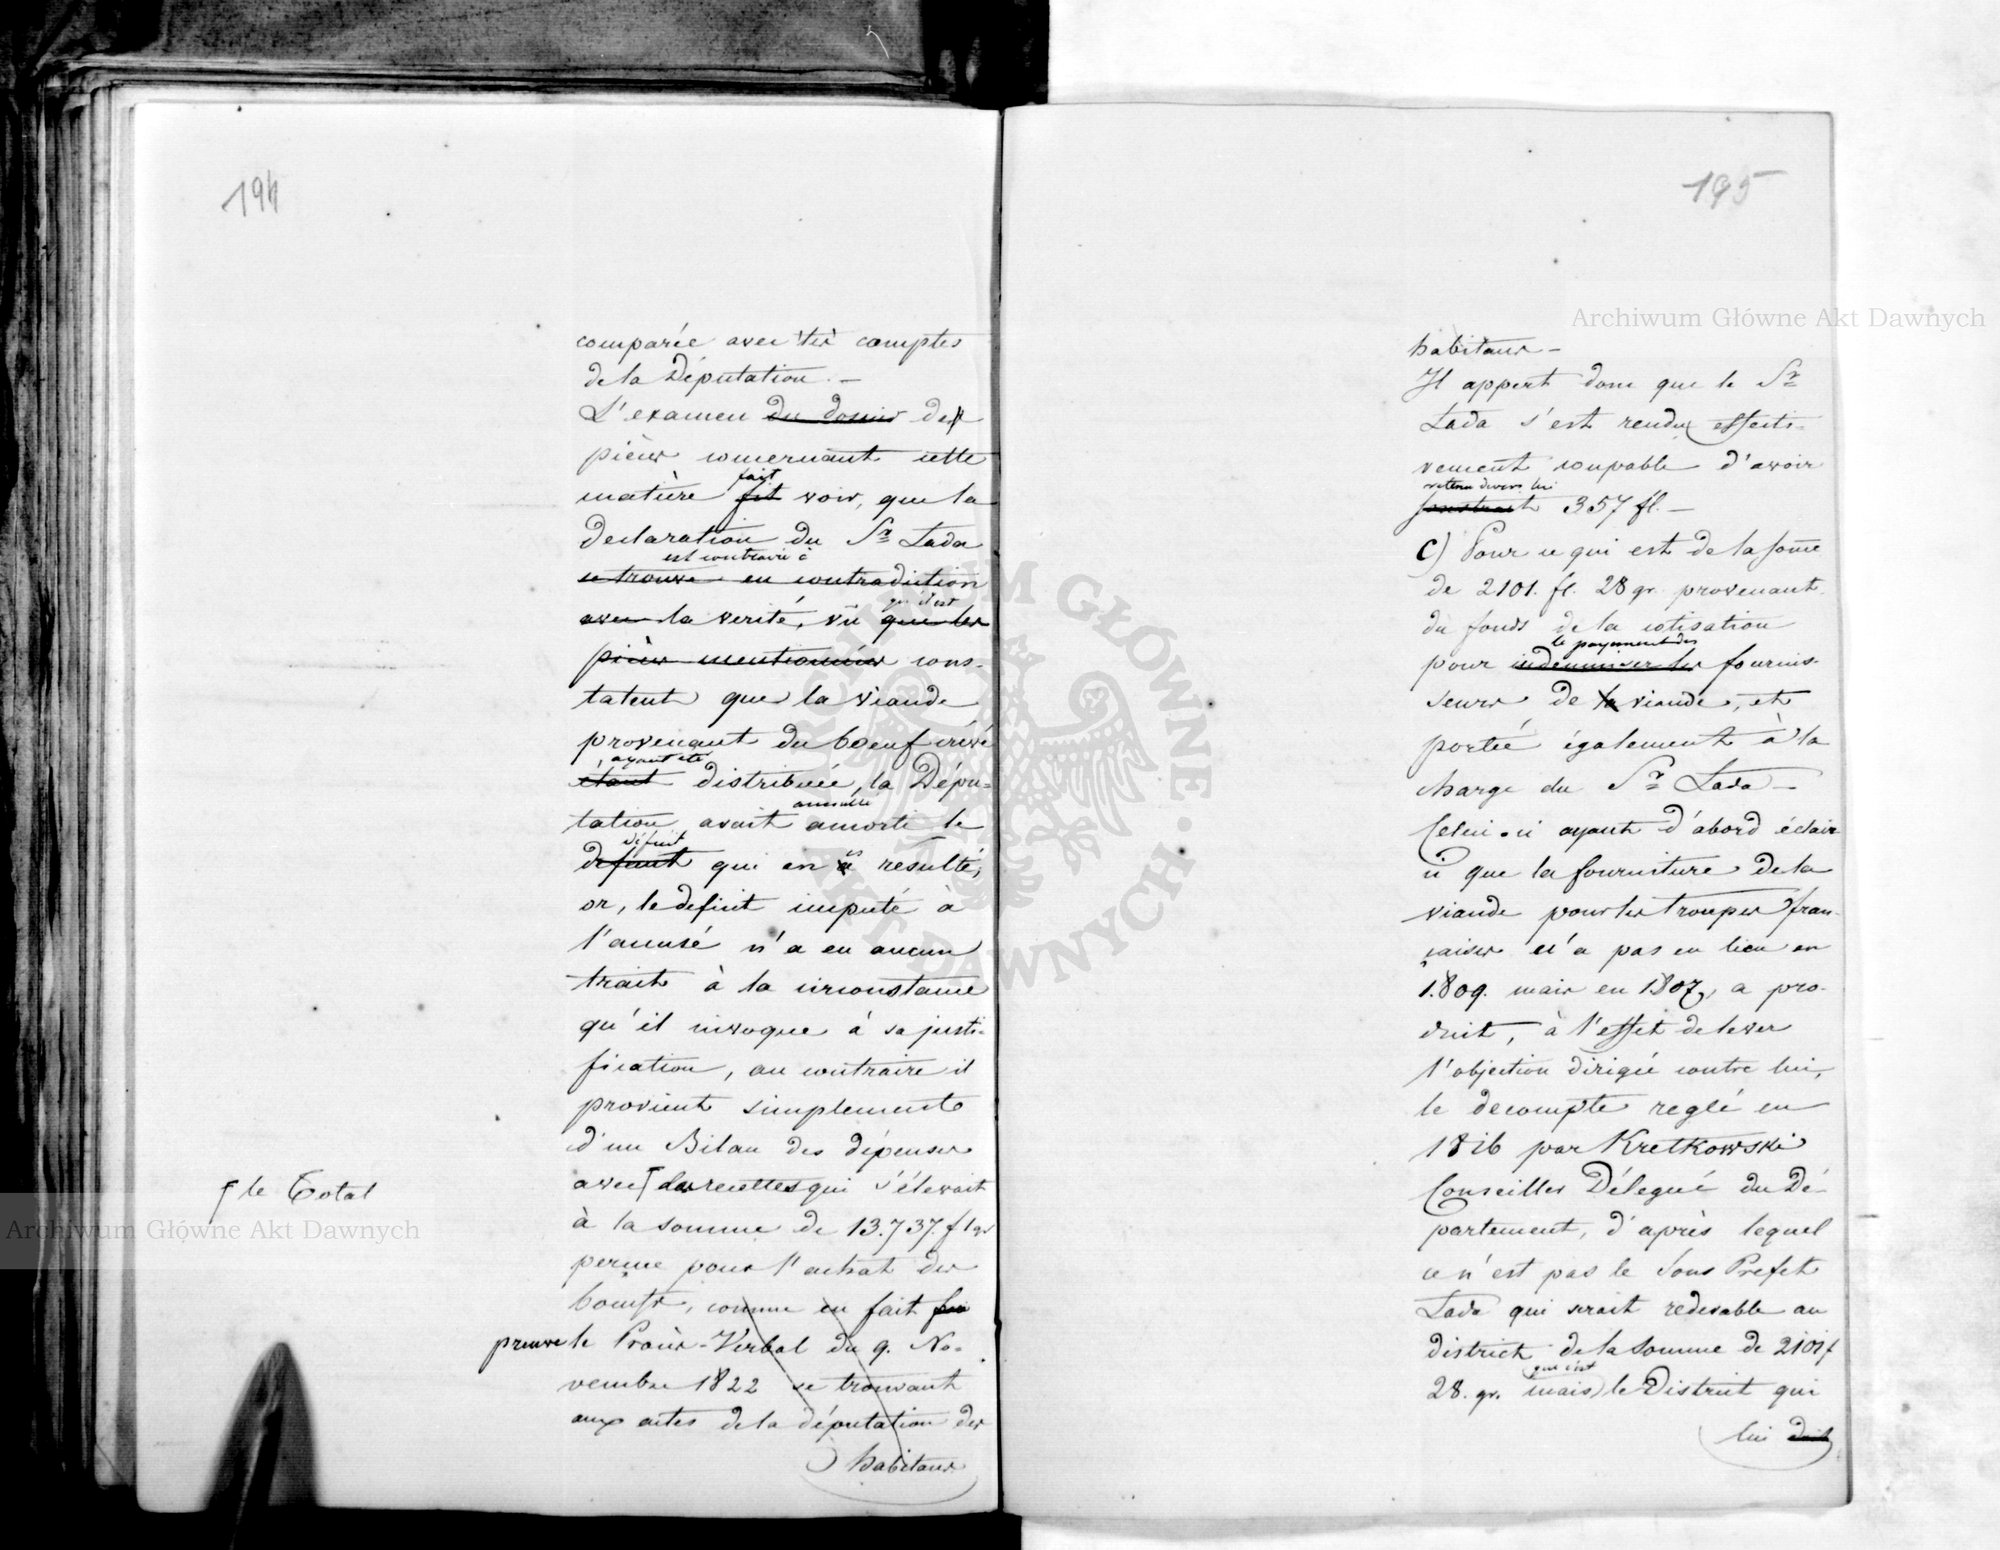 194
comparée avec les comptes
de la Députation. –
L'examen du dossier des
pièces concernant cette
fait
matière fit voir, que la
declaration du Sr Lada
est contraire à
se trouve en contradiction
qu'il est
avec la verité, vû que les
pièces mentionnées cons-
tatent que la viande
provenant du boeuf crévé
, ayant été
étant distribuée, la Dépu-
annullé
tation avait amorti le
déficit
defaut qui en a resulté;
or, le deficit imputé à
l'accusé n'a eu aucun
trait à la circonstance
qu'il invoque à sa justi-
fication, au contraire il
provient simplement
d'un Bilan des dépenses
avec des recettes qui s'élevait
le Total
à la somme de 13.737. f 1 gr
percue pour l'achat des
boeufs, comme en fait foi
preuve le Procès-Verbal du 9. No-
vembre 1822 se trouvant
aux actes de la députation des
habitans
195
habitans –
Il appert donc que le Sr
Lada s'est rendu effecti-
vement coupable d'avoir
retenu devers lui
soustrait 357 fl. –
C) Pour ce qui est de la some
de 2101. fl. 28 gr. provenant
du fonds de la cotisation
le payement des
pour indemniser les fournis-
seurs de la viande, et
portée également à la
charge du Sr Lada –
Celui-ci ayant d'abord éclair-
ci que la fourniture de la
viande pour les troupes fran-
çaises n'a pas eu lieu en
1809. mais en 1807, a pro-
duit, à l'effet de lever
l'objection dirigée contre lui,
le decompte reglé en
1816 par Kretkowski
Conseiller Délegué du Dé-
partement, d'après lequel
ce n'est pas le Sous Prefet
Lada qui serait redevable au
district de la somme de 2101 f
que c'est
28. gr. mais le District qui
lui doit
Archiwum Główne Akt Dawnych
Archiwum Główne Akt Dawnych
ARCHIWUM GŁÓWNE · AKT DAWNYCH ·